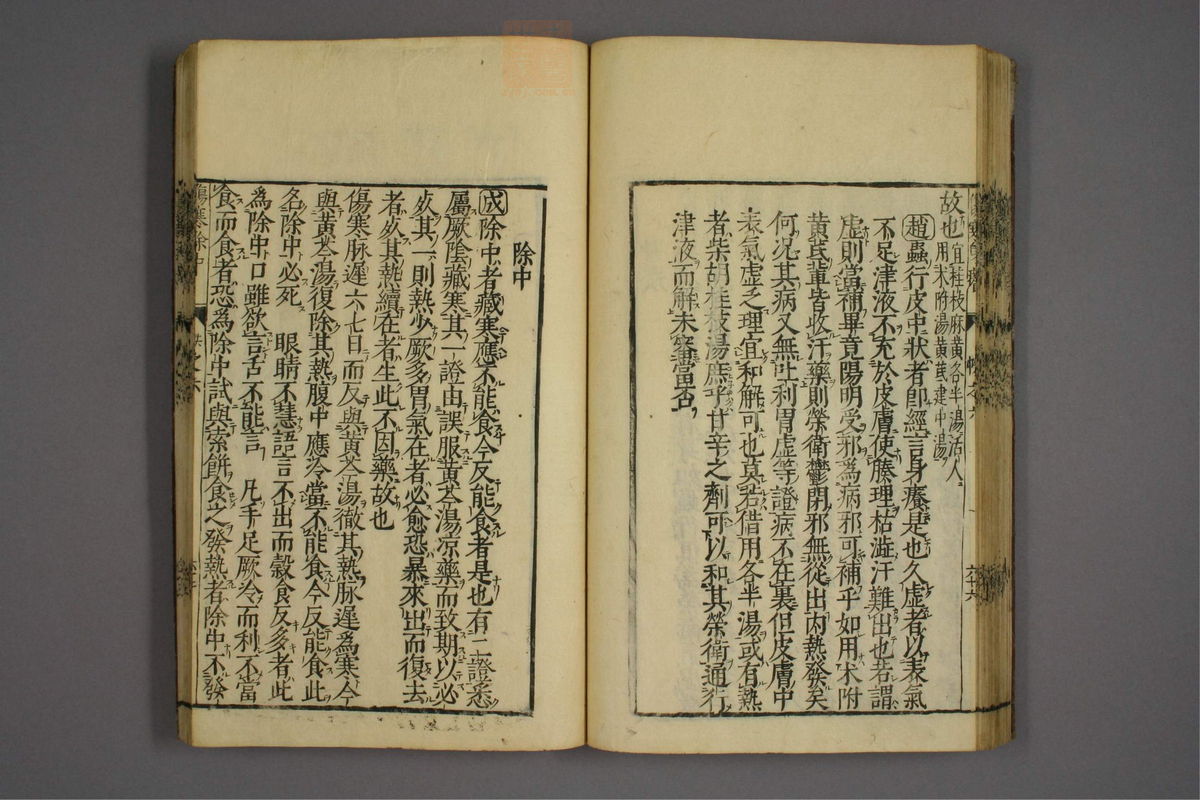 故也宜桂枝麻黃各半湯活人
用朮附湯黃芪建中湯
趙蟲行皮中狀者即經言身癢是也久虛者以表氣
不足津液不充於皮膚使腠理枯澁汗難出也若謂
虛則當補畢竟陽明受邪為病邪可補乎如用朮附
黃芪輩皆收汗藥則榮衛鬱閉邪無從出内熱發矣
何况其病又無吐利胃虛等證病不在裏但皮膚中
表氣虛乏理宜和解可也莫若借用各半湯或有熱
者柴胡桂枝湯庶乎甘辛之劑可以和其榮衛通行
津液而解未審當否
除中
成除中者藏寒應不能食今反能食者是也有二證悉
屬厥陰藏寒其一證由誤服黃芩湯凉藥而致期以必
死其一則熱少厥多胃氣在者必愈恐暴來出而復去
者死其熱續在者生此不因藥故也
傷寒脉遲六七日而反與黃芩湯徹其熱脉遲為寒今
與黃芩湯復除其熱腹中應冷當不能食今反能食此
名除中必死 眼睛不慧語言不出而穀食反多者此
為除中口雖欲言舌不能言 凡手足厥冷而利不當
食而食者恐為除中試與索餅食之發熱者除中不發
傷寒除中